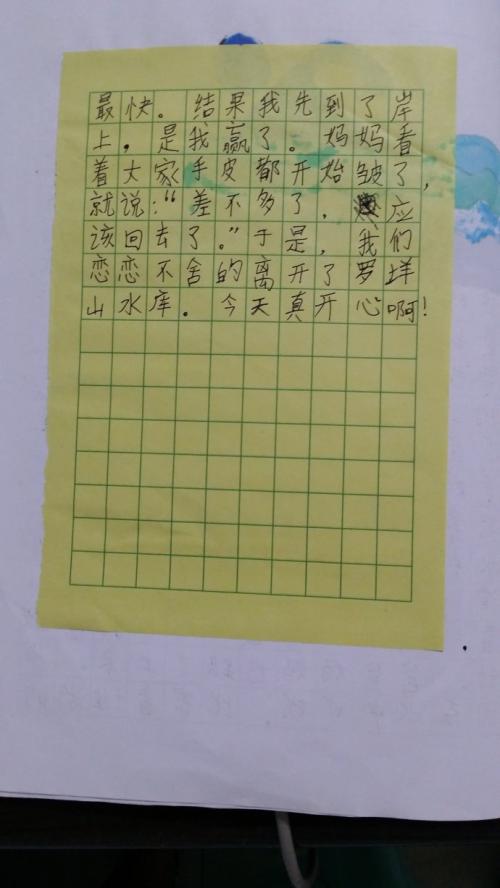 最快。结果我先到了岸
上，是我赢了。妈妈看
着大家手皮都开始皱了，
就说：“差不多了，应
该回去了。”于是，我们
恋恋不舍的离开了罗垟
山水库。今天真开心啊！